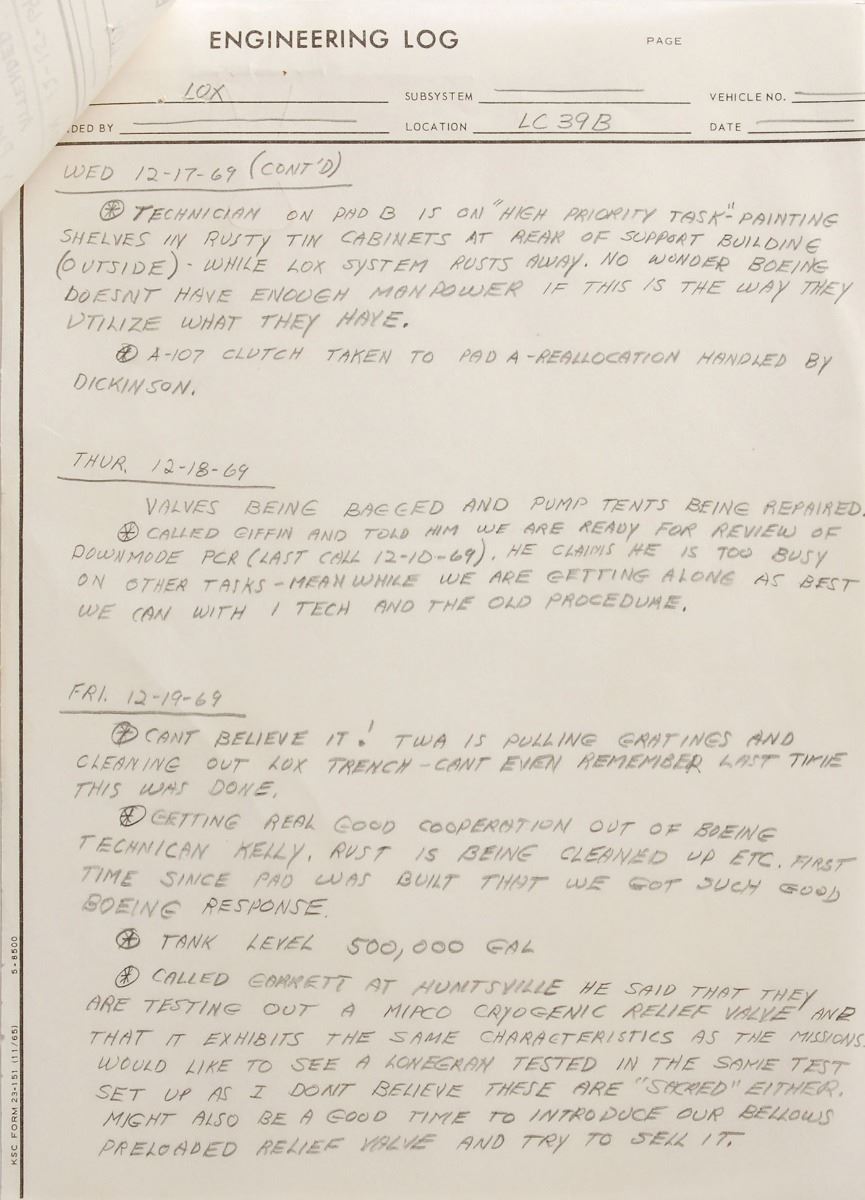 ENGINEERING LOG
PAGE
LOX
SUBSYSTEM
VEHICLE NO.
DED BY
LOCATION LC 39B
DATE
WED 12-17-69 (CONT'D)
* TECHNICIAN ON PAD B IS ON "HIGH PRIORITY TASK"- PAINTING
SHELVES IN RUSTY TIN CABINETS AT REAR OF SUPPORT BUILDING
(OUTSIDE) - WHILE LOX SYSTEM RUSTS AWAY. NO WONDER BOEING
DOESNT HAVE ENOUGH MANPOWER IF THIS IS THE WAY THEY
UTILIZE WHAT THEY HAVE.
* A-107 CLUTCH TAKEN TO PAD A - REALLOCATION HANDLED BY
DICKINSON.
THUR. 12-18-69
VALVES BEING BAGGED AND PUMP TENTS BEING REPAIRED.
* CALLED GIFFIN AND TOLD HIM WE ARE READY FOR REVIEW OF
DOWNMODE PCR (LAST CALL 12-10-69). HE CLAIMS HE IS TOO BUSY
ON OTHER TASKS - MEANWHILE WE ARE GETTING ALONG AS BEST
WE CAN WITH 1 TECH AND THE OLD PROCEDURE.
FRI. 12-19-69
* CANT BELIEVE IT! TWA IS PULLING GRATINGS AND
CLEANING OUT LOX TRENCH - CANT EVEN REMEMBER LAST TIME
THIS WAS DONE.
* GETTING REAL GOOD COOPERATION OUT OF BOEING
TECHNICAN KELLY. RUST IS BEING CLEANED UP ETC. FIRST
TIME SINCE PAD WAS BUILT THAT WE GOT SUCH GOOD
BOEING RESPONSE.
* TANK LEVEL 500,000 GAL
* CALLED GARRETT AT HUNTSVILLE HE SAID THAT THEY
ARE TESTING OUT A MIPCO CRYOGENIC RELIEF VALVE AND
THAT IT EXHIBITS THE SAME CHARACTERISTICS AS THE MISSIONS.
WOULD LIKE TO SEE A LONEGRAN TESTED IN THE SAME TEST
SET UP AS I DONT BELIEVE THESE ARE "SACRED" EITHER.
MIGHT ALSO BE A GOOD TIME TO INTRODUCE OUR BELLOWS
PRELOADED RELIEF VALVE AND TRY TO SELL IT.
KSC FORM 23-151 (11/65) 5-8500